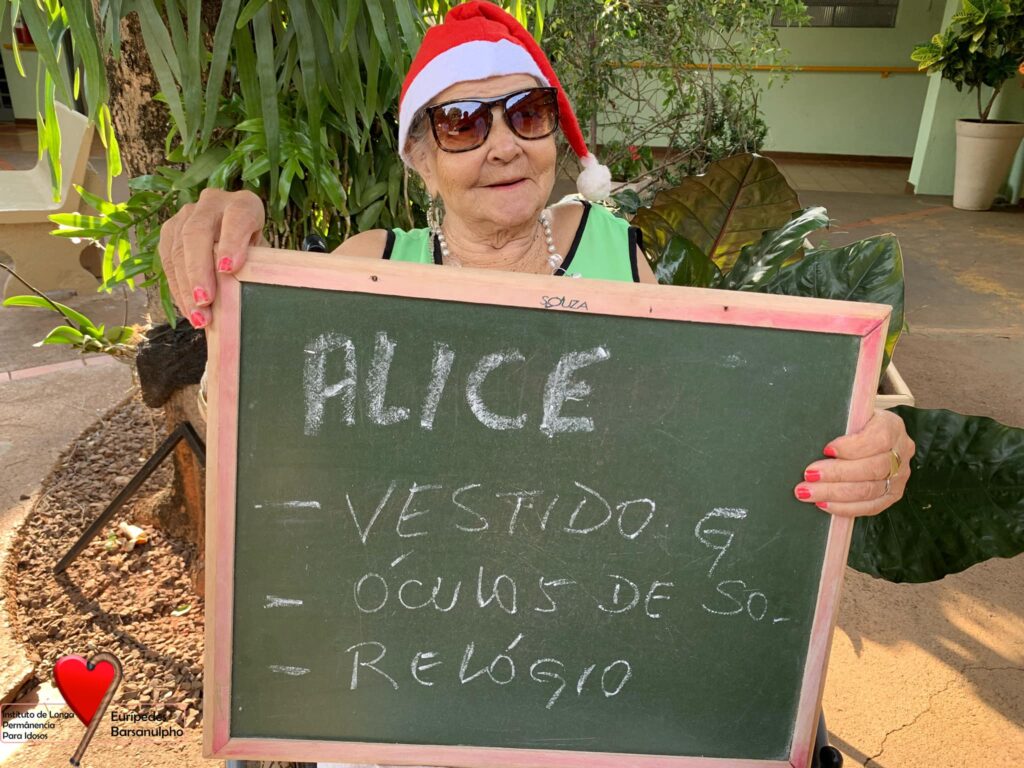 SOUZA
ALICE
- VESTIDO. G
- ÓCULOS DE SO_
- RELÓGIO
Instituto de Longa
Permânencia
Para Idosos
Eurípedes
Barsanulpho